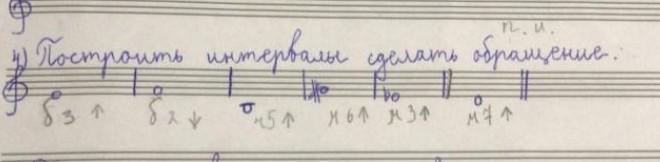 п. и.
4) Построить интервалы сделать обращение.
б3 ↑ б2 ↓ ч5 ↑ м6 ↑ м3 ↑ м7 ↑